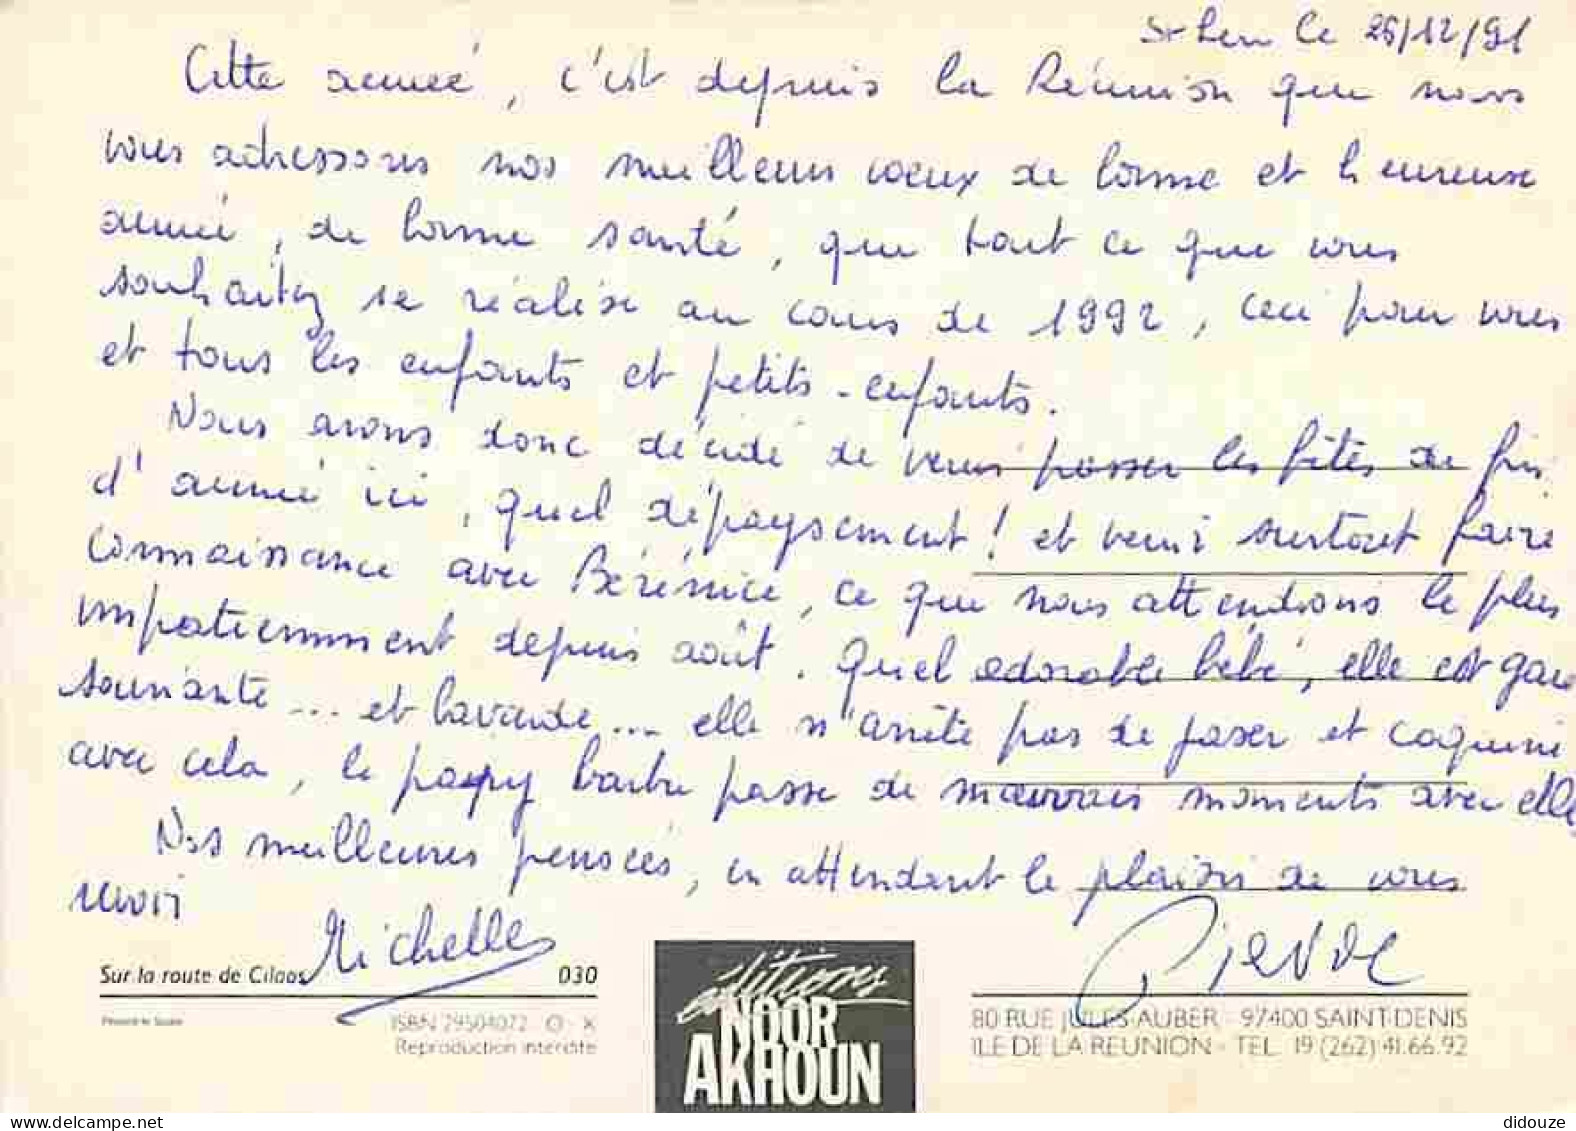 St Leu Le 26/12/91
Cette année, c'est depuis la Réunion que nous
vous adressons nos meilleurs voeux de bonne et heureuse
année, de bonne santé, que tout ce que vous
souhaitez se réalise au cours de 1992, ceci pour vous
et tous les enfants et petits-enfants.
Nous avons donc décidé de venir passer les fêtes de fin
d'année ici, quel dépaysement ! et venir surtout faire
connaissance avec Bérénice, ce que nous attendions le plus
impatiemment depuis août. Quel adorable bébé, elle est gaie
souriante ... et bavarde ... elle n'arrête pas de jaser et coquine
avec cela, le papy barbu passe de mauvais moments avec elle.
Nos meilleures pensées, en attendant le plaisir de vous
revoir
Michelle
Pierre
Sur la route de Cilaos 030
ISBN 29504072 O - X
Reproduction interdite
éditions
NOOR
AKHOUN
80 RUE JULES AUBER - 97400 SAINT-DENIS
ILE DE LA REUNION - TEL. 19 (262) 41.66.92
delcampe.net
didouze